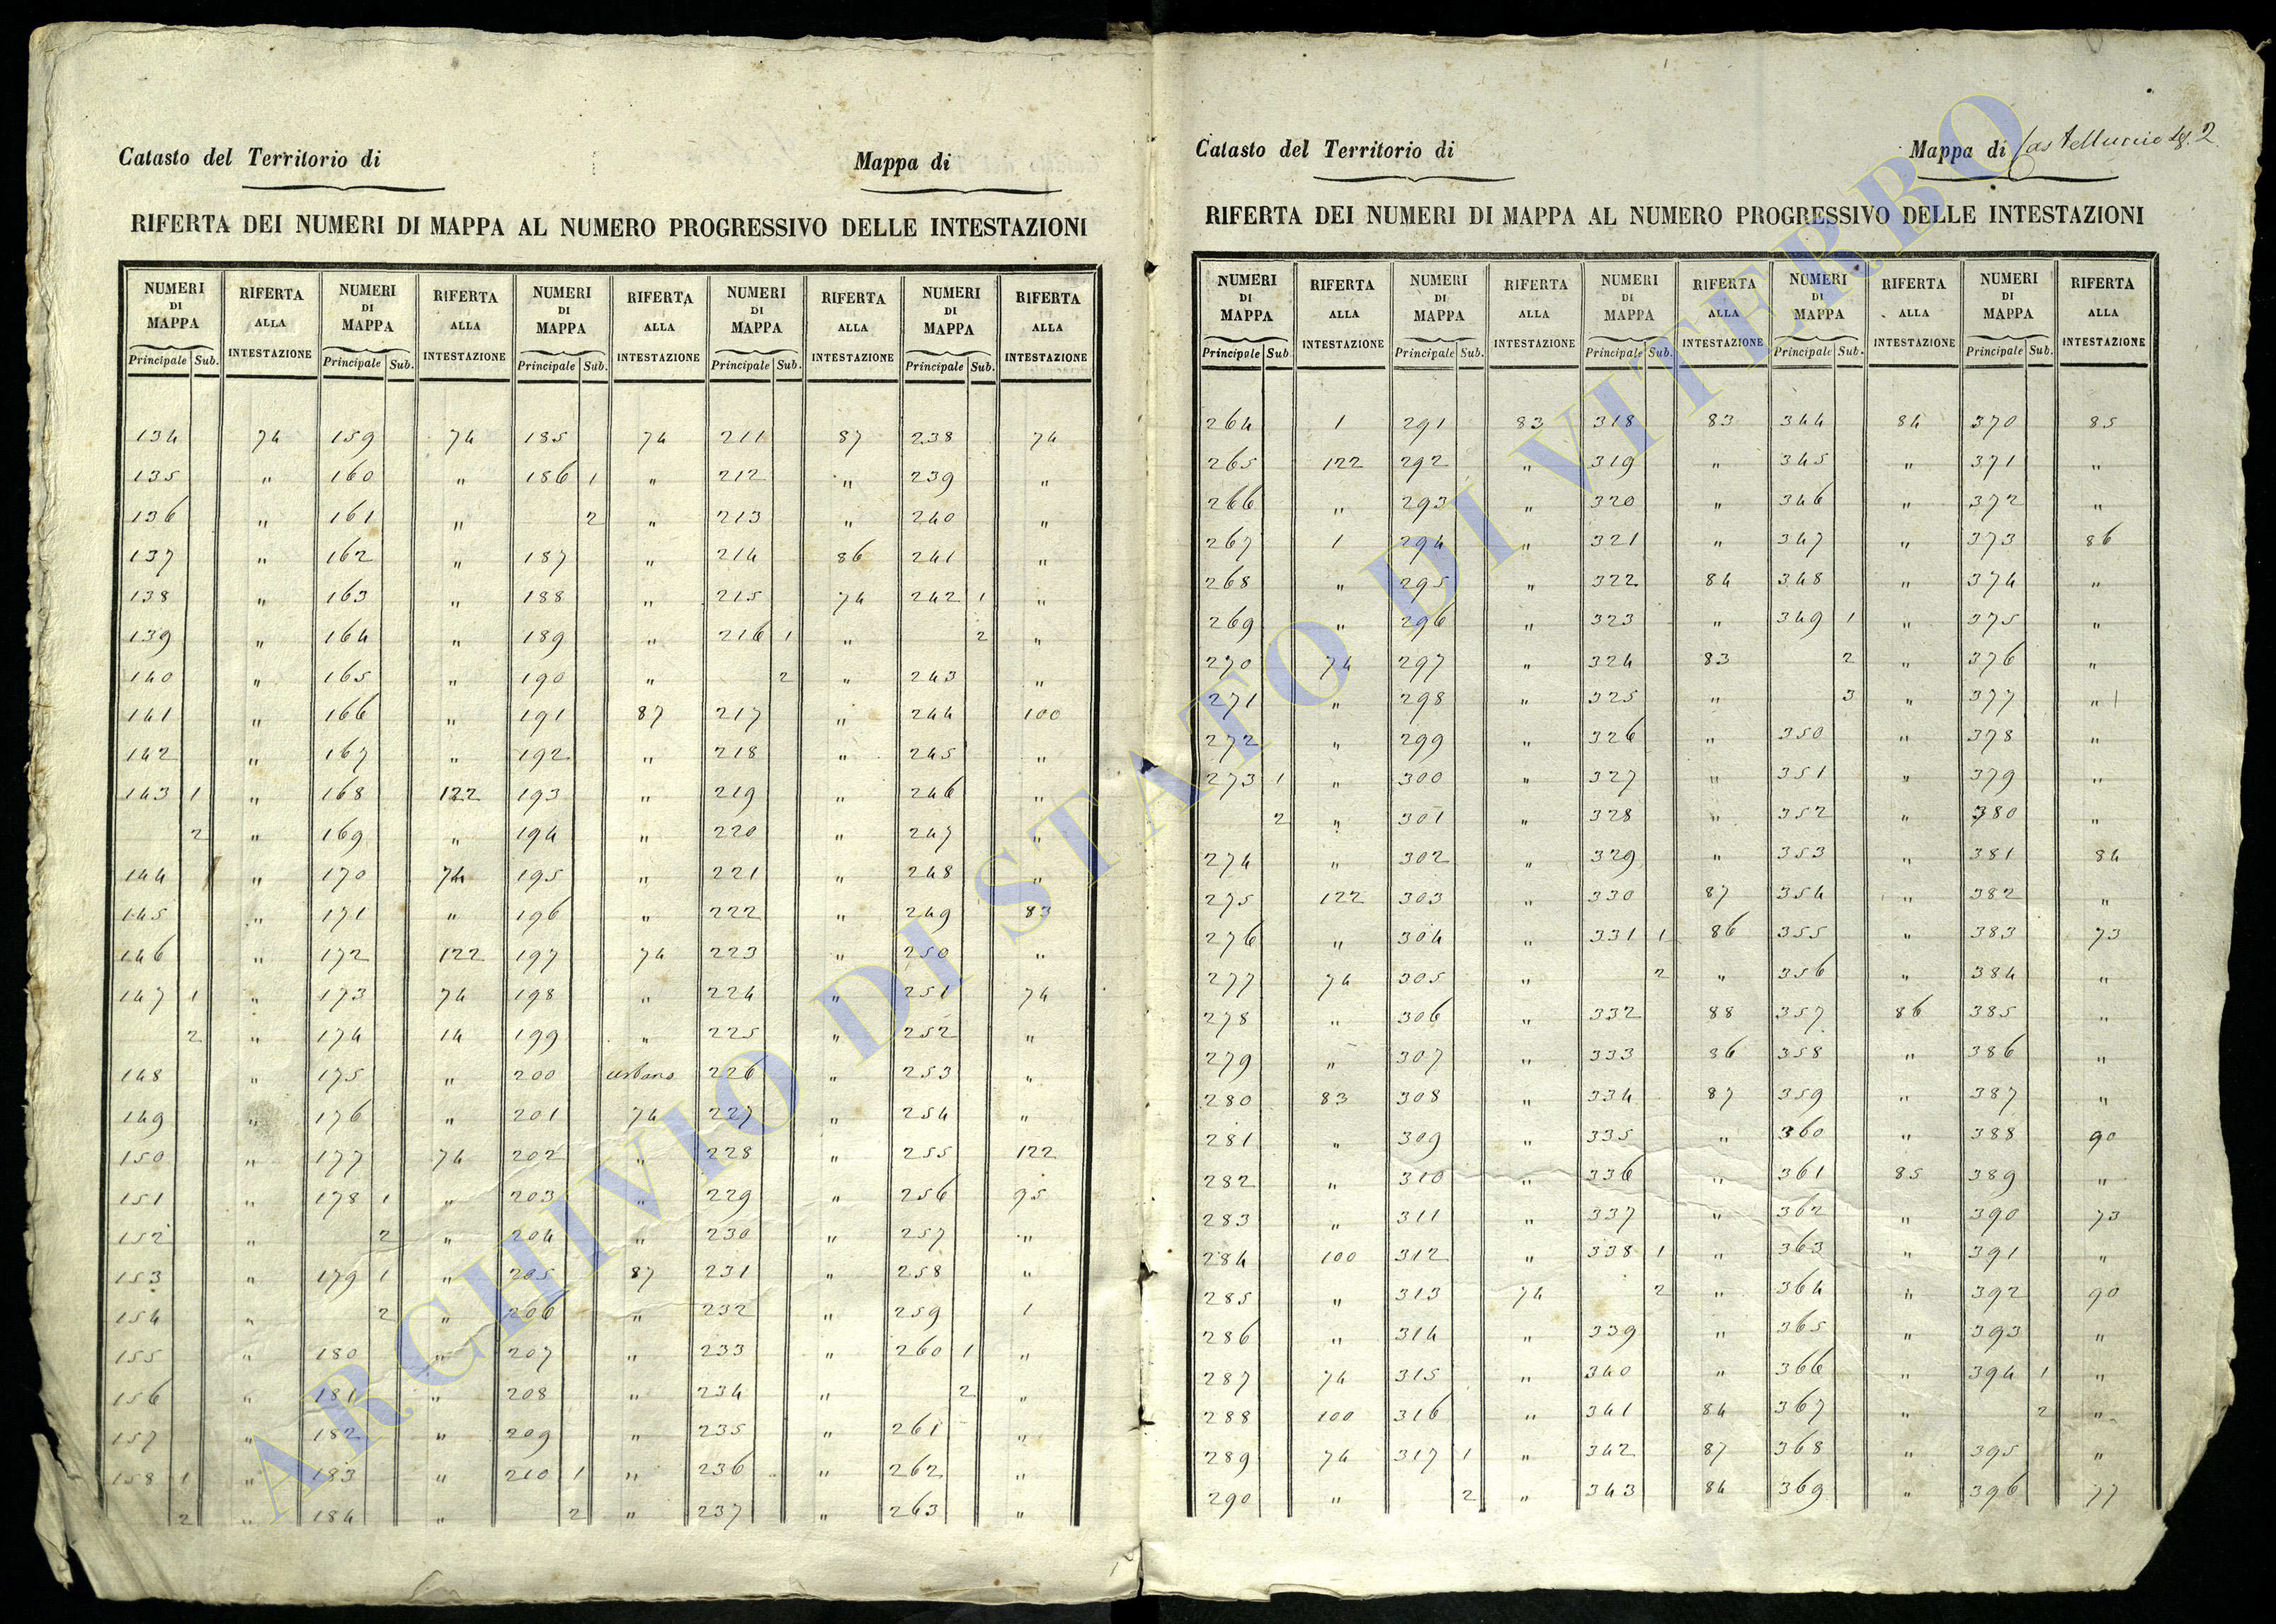 Catasto del Territorio di
Mappa di
RIFERTA DEI NUMERI DI MAPPA AL NUMERO PROGRESSIVO DELLE INTESTAZIONI
NUMERI RIFERTA NUMERI RIFERTA NUMERI RIFERTA NUMERI RIFERTA NUMERI RIFERTA
DI ALLA DI ALLA DI ALLA DI ALLA DI ALLA
MAPPA INTESTAZIONE MAPPA INTESTAZIONE MAPPA INTESTAZIONE MAPPA INTESTAZIONE MAPPA INTESTAZIONE
Principale Sub. Principale Sub. Principale Sub. Principale Sub. Principale Sub.
134 74 159 74 185 74 211 87 238 74
135 " 160 " 186 1 " 212 " 239 "
136 " 161 " 2 " 213 " 240 "
137 " 162 " 187 " 214 86 241 "
138 " 163 " 188 " 215 74 242 1 "
139 " 164 " 189 " 216 1 " 2 "
140 " 165 " 190 " 2 " 243 "
141 " 166 " 191 87 217 " 244 100
142 " 167 " 192 " 218 " 245 "
143 1 " 168 122 193 " 219 " 246 "
2 " 169 " 194 " 220 " 247 "
144 " 170 74 195 " 221 " 248 "
145 " 171 " 196 " 222 " 249 83
146 " 172 122 197 74 223 " 250 "
147 1 " 173 74 198 " 224 " 251 74
2 " 174 14 199 " 225 " 252 "
148 " 175 " 200 urbano 226 " 253 "
149 " 176 " 201 74 227 " 254 "
150 " 177 74 202 " 228 " 255 122
151 " 178 1 " 203 " 229 " 256 75
152 " 2 " 204 " 230 " 257 "
153 " 179 1 " 205 87 231 " 258 "
154 " 2 " 206 " 232 " 259 1
155 " 180 " 207 " 233 " 260 1 "
156 " 181 " 208 " 234 " 2 "
157 " 182 " 209 " 235 " 261 "
158 1 " 183 " 210 1 " 236 " 262 "
2 " 184 " 2 " 237 " 263 "
Catasto del Territorio di
Mappa di Castelluccio Sez. 2.
RIFERTA DEI NUMERI DI MAPPA AL NUMERO PROGRESSIVO DELLE INTESTAZIONI
NUMERI RIFERTA NUMERI RIFERTA NUMERI RIFERTA NUMERI RIFERTA NUMERI RIFERTA
DI ALLA DI ALLA DI ALLA DI ALLA DI ALLA
MAPPA INTESTAZIONE MAPPA INTESTAZIONE MAPPA INTESTAZIONE MAPPA INTESTAZIONE MAPPA INTESTAZIONE
Principale Sub. Principale Sub. Principale Sub. Principale Sub. Principale Sub.
264 1 291 83 318 83 344 84 370 85
265 122 292 " 319 " 345 " 371 "
266 " 293 " 320 " 346 " 372 "
267 1 294 " 321 " 347 " 373 86
268 " 295 " 322 84 348 " 374 "
269 " 296 " 323 " 349 1 " 375 "
270 74 297 " 324 83 2 " 376 "
271 " 298 " 325 " 3 " 377 "
272 " 299 " 326 " 350 " 378 "
273 1 " 300 " 327 " 351 " 379 "
2 " 301 " 328 " 352 " 380 "
274 " 302 " 329 " 353 " 381 84
275 122 303 " 330 87 354 " 382 "
276 " 304 " 331 1 86 355 " 383 73
277 74 305 " 2 " 356 " 384 "
278 " 306 " 332 88 357 86 385 "
279 " 307 " 333 86 358 " 386 "
280 83 308 " 334 87 359 " 387 "
281 " 309 " 335 " 360 " 388 90
282 " 310 " 336 " 361 85 389 "
283 " 311 " 337 " 362 " 390 73
284 100 312 " 338 1 " 363 " 391 "
285 " 313 74 2 " 364 " 392 90
286 " 314 " 339 " 365 " 393 "
287 74 315 " 340 " 366 " 394 1 "
288 100 316 " 341 84 367 " 2 "
289 74 317 1 " 342 87 368 " 395 "
290 " 2 " 343 84 369 " 396 77
ARCHIVIO DI STATO DI VITERBO